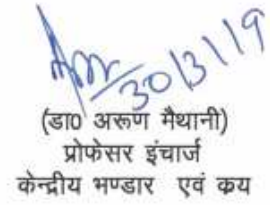 30/3/19
(डा0 अरूण मैथानी)
प्रोफेसर इंचार्ज
केन्द्रीय भण्डार एवं क्रय